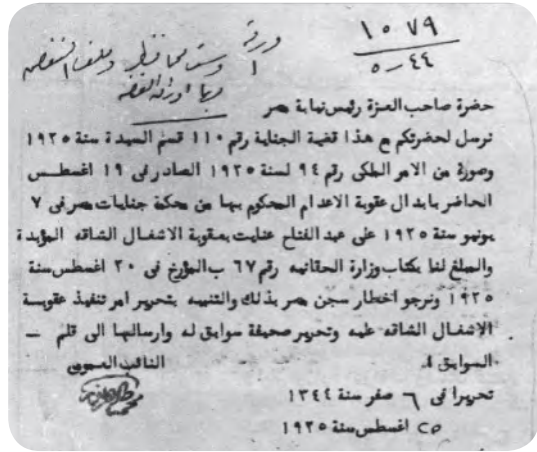 ١٠٧٩
٥-٤٤
ورقة
١
وستة محافظ وملف الشخص
وبها اوراق القضية
حضرة صاحب العزة رئيس نيابة مصر
نرسل لحضرتكم مع هذا قضية الجناية رقم ١١٠ قسم السيدة سنة ١٩٢٥
وصورة من الامر الملكى رقم ٩٤ لسنة ١٩٢٥ الصادر فى ١٩ اغسطس
الحاضر بابدال عقوبة الاعدام المحكوم بها من محكمة جنايات مصر فى ٧
يونيو سنة ١٩٢٥ على عبد الفتاح عنايت بعقوبة الاشغال الشاقه المؤبدة
والمبلغ لنا بكتاب وزارة الحقانيه رقم ٦٧ ب المؤرخ فى ٢٠ اغسطس سنة
١٩٢٥ ونرجو اخطار سجن مصر بذلك والتنبيه بتحرير امر تنفيذ عقوبة
الاشغال الشاقه عليه وتحرير صحيفة سوابق له وارسالها الى قلم —
السوابق ،
النائب العمومى
تحريرا فى ٦ صفر سنة ١٣٤٤
٢٥ اغسطس سنة ١٩٢٥